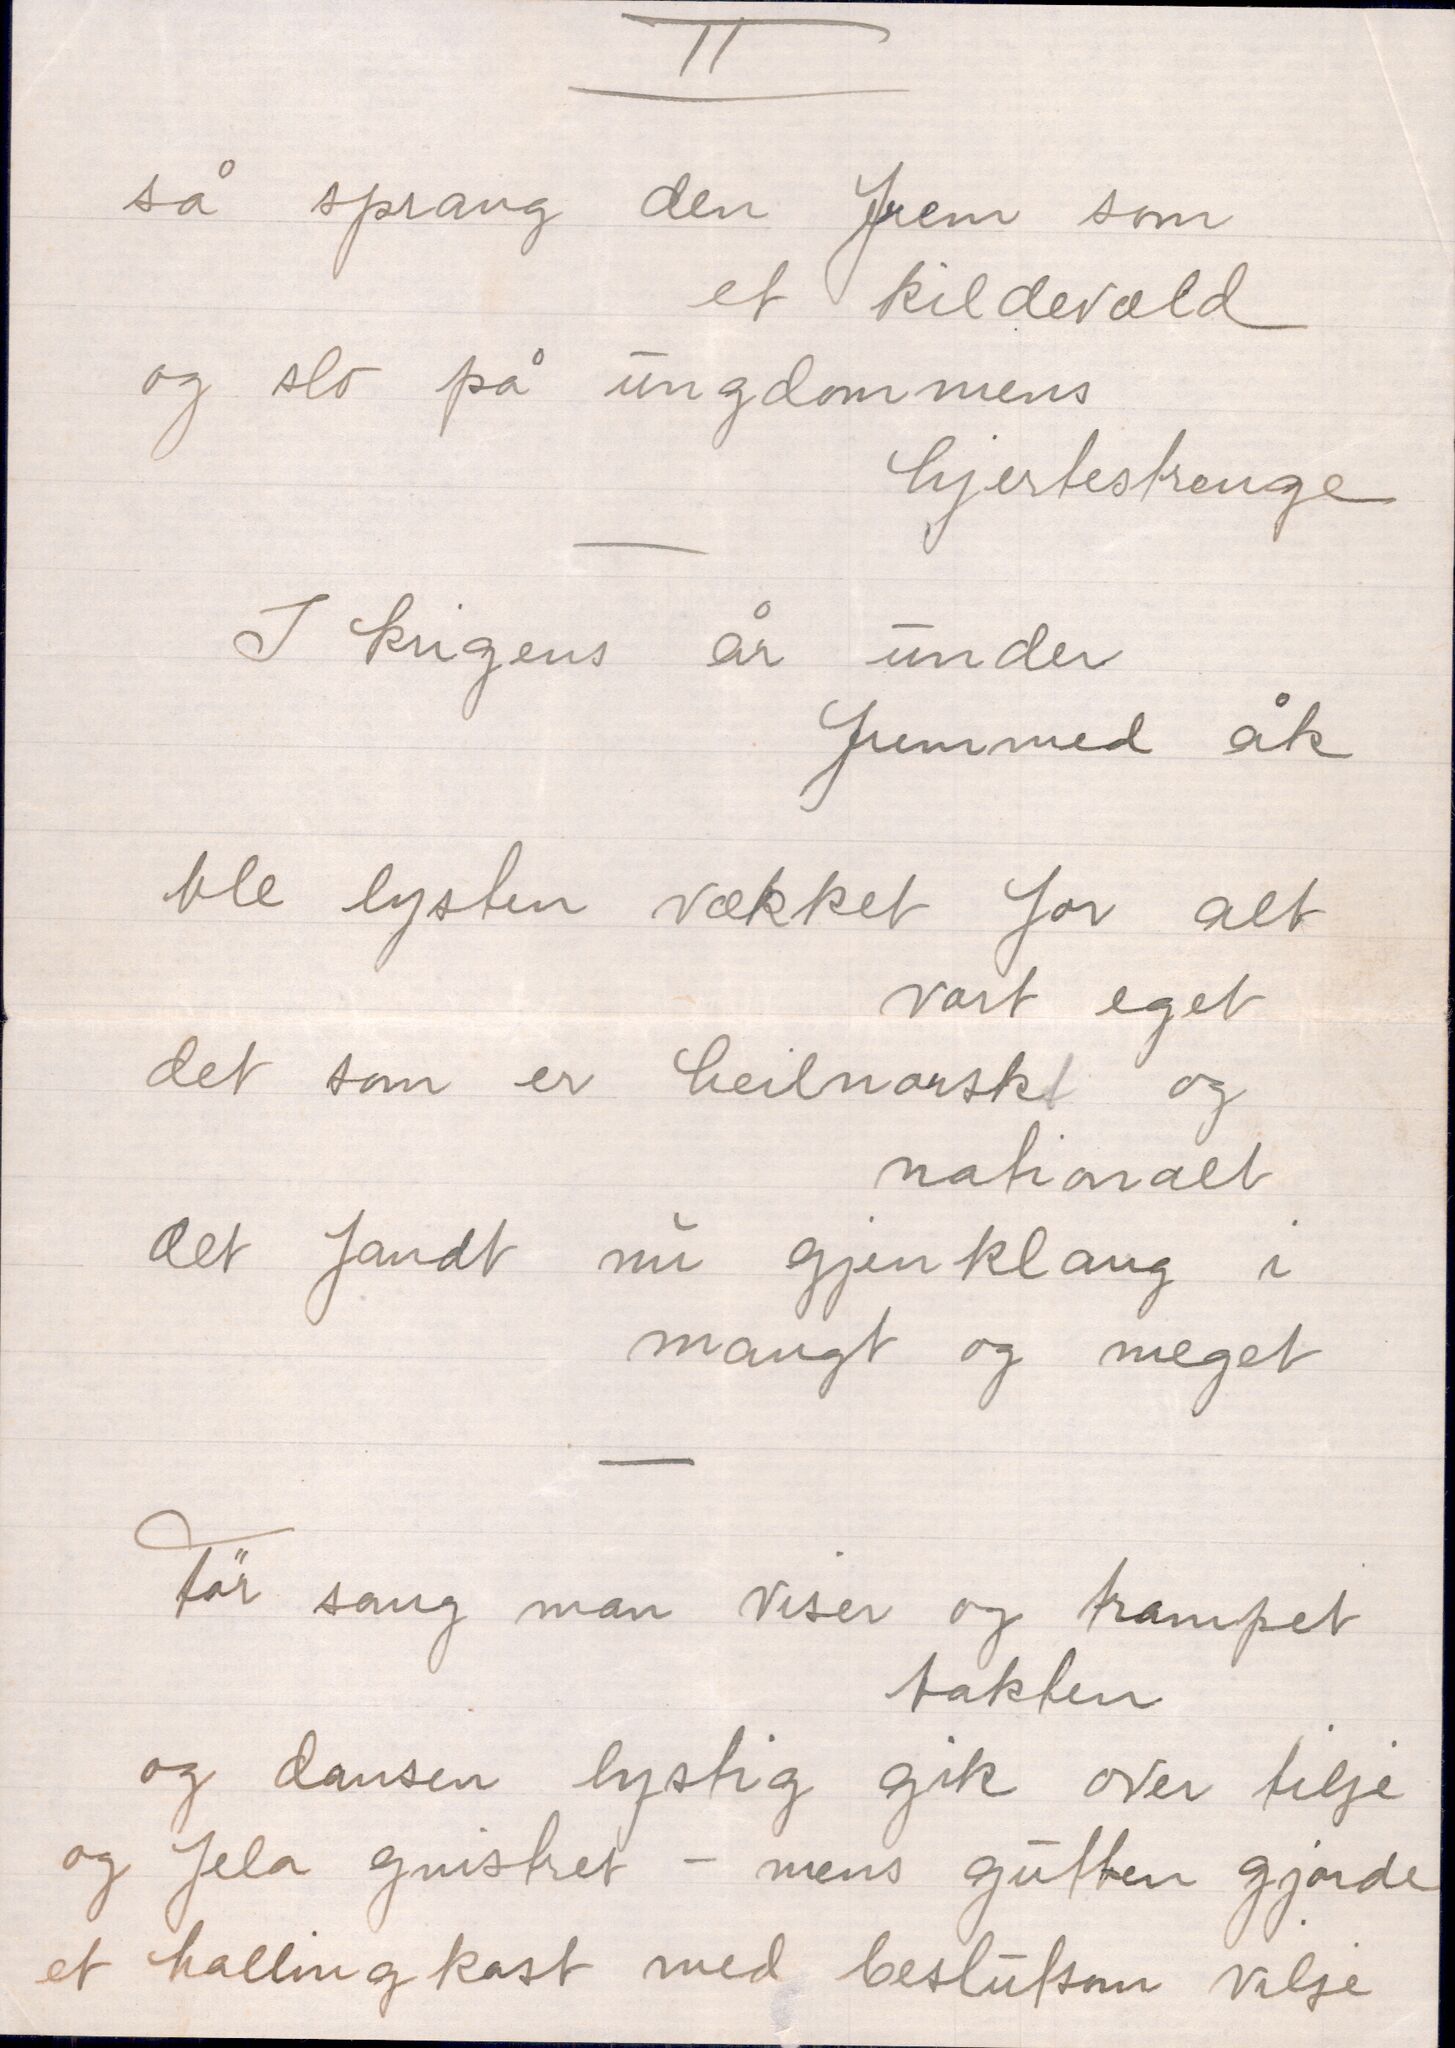 II
så sprang den frem som
et kildevæld
og slo på ungdommens
hjertestrenge
I krigens år under
fremmed åk
ble lysten vækket for alt
vort eget
det som er heilnorskt og
nationalt
det fandt nu gjenklang i
mangt og meget
Før sang man viser og trampet
takten
og dansen lystig gik over tilje
og fela gnistret – mens gutten gjorde
et hallingkast med beslutsom vilje